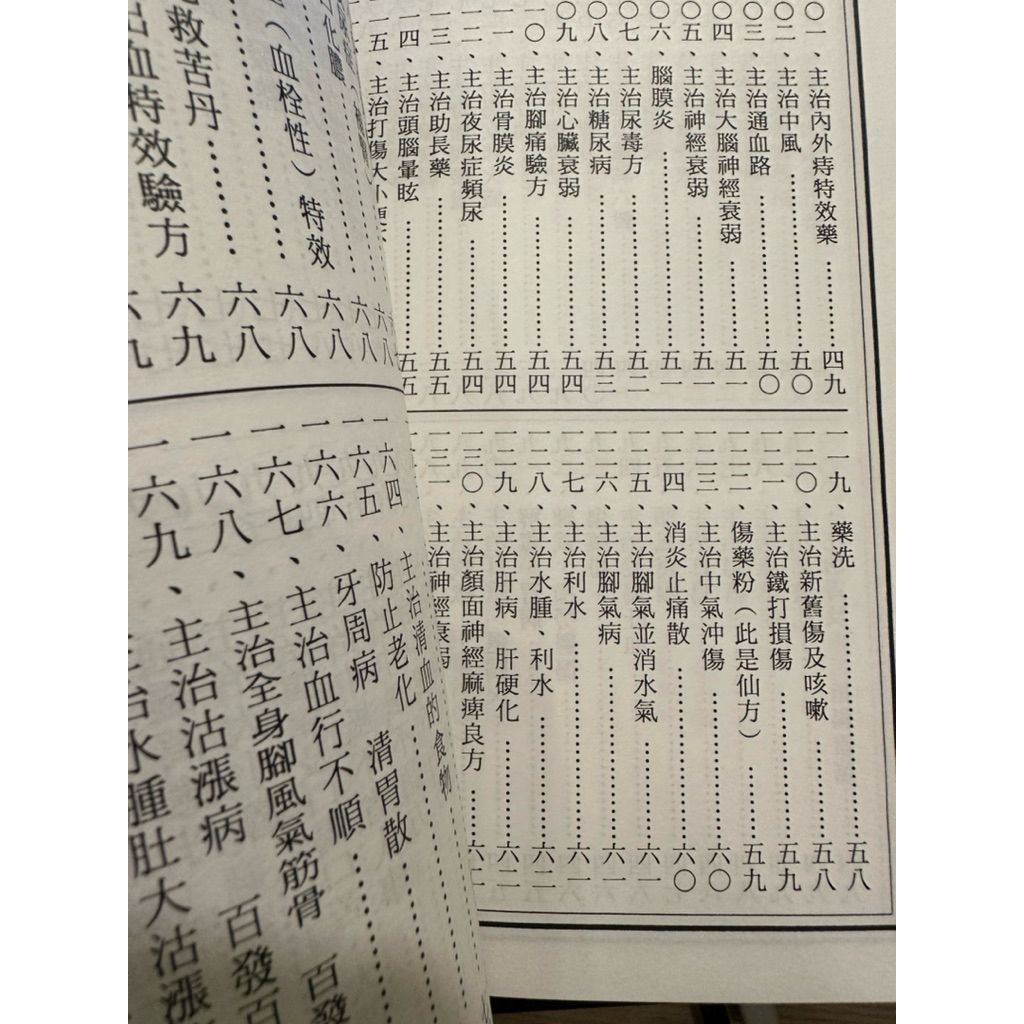 〇一、主治內外痔特效藥……四九
〇二、主治中風……五〇
〇三、主治通血路……五〇
〇四、主治大腦神經衰弱……五一
〇五、主治神經衰弱……五一
〇六、腦膜炎……五一
〇七、主治尿毒方……五二
〇八、主治糖尿病……五三
〇九、主治心臟衰弱……五四
一〇、主治腳痛驗方……五四
一一、主治骨膜炎……五四
一二、主治夜尿症頻尿……五四
一三、主治助長藥……五五
一四、主治頭腦暈眩……五五
一五、主治打傷大小便
一一九、藥洗……五八
一二〇、主治新舊傷及咳嗽……五八
一二一、主治鐵打損傷……五九
一二二、傷藥粉（此是仙方）……五九
一二三、主治中氣沖傷……六〇
一二四、消炎止痛散……六〇
一二五、主治腳氣並消水氣……六一
一二六、主治腳氣病……六一
一二七、主治利水……六一
一二八、主治水腫、利水……六二
一二九、主治肝病、肝硬化……六二
一三〇、主治顏面神經麻痺良方……六二
一三一、主治神經衰弱
（血栓性）特效……六八
救苦丹……六八
出血特效驗方……六九
一六四、主治清血的食物
一六五、防止老化……
一六六、牙周病 清胃散……
一六七、主治血行不順……
一六八、主治全身腳風氣筋骨 百發
一六九、主治沽漲病 百發百
主治水腫肚大沽漲